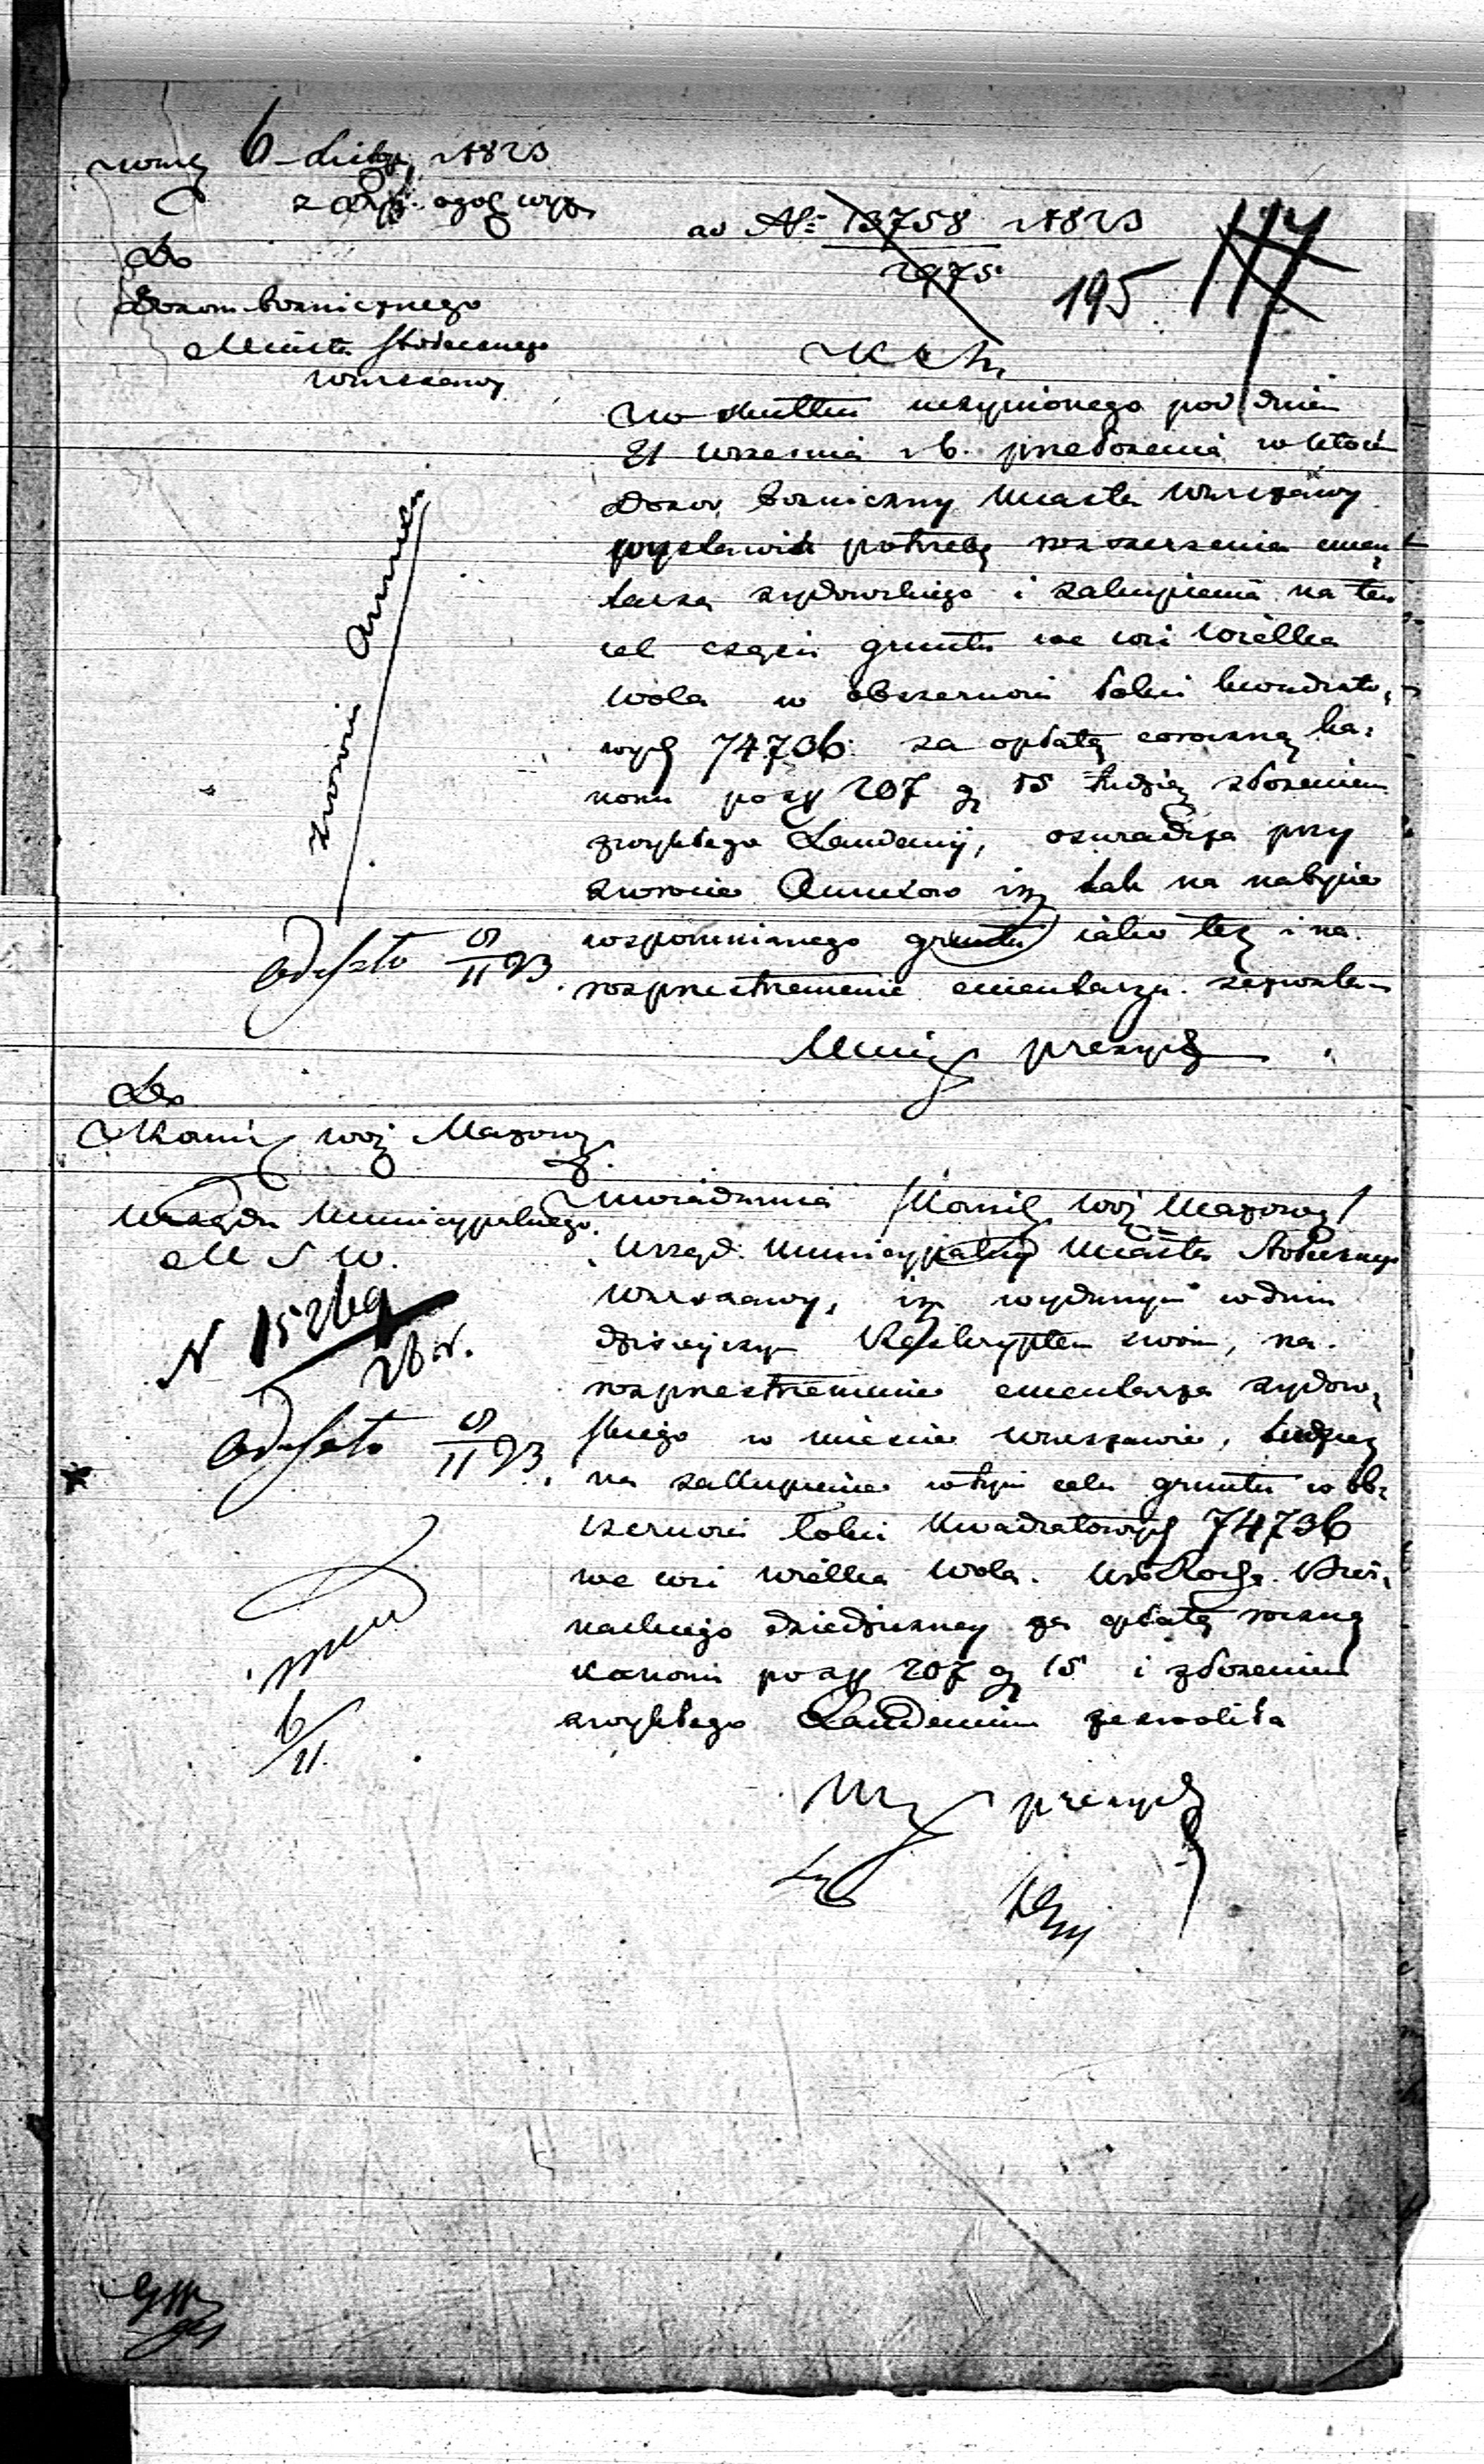 6 Listop. 1823
ad N: 13758 1823
2975
195
117
Do
Dozoru Bożniczego
Miasta Stołecznego
Warszawy
W skutku uczynionego pod dniem
21 września r. b. przełożenia w którem
Dozor Bożniczny Miasta Warszawy
potrzebę rozszerzenia cmen,
tarza żydowskiego i zakupienia na ten
cel części gruntu we wsi Wielka
Wola w obszerności łokci kwadrato,
wych 74736 za opłatą coroczną ka,
nonu po zł 207 g 15 tudzież złożeniem
zwykłego Laudemij, przy
zwrocie Annexow iż tak na nabycie
wspomnianego gruntu iako też i na
rozprzestrzenienie cmentarza zezwala
Zwrócić Annexa
Odeszło 8/11 23.
Minis prezyd
Do
Kommis woj Mazow
Urzędu Municypalnego
M S W.
N 15269
Odeszło 8/11 23.
6/11
Uwiadamia Kommis woj Mazowie
Urząd Municypalny Miasta Stołecznego
Warszawy, iż wydanym w dniu
dzisieyszym Reskryptem swoim, na
rozprzestrzenienie cmentarza żydow,
skiego w mieście Warszawie, tudzież
na zakupienie w tym celu gruntu w ob,
szerności łokci kwadratowych 74736
we wsi Wielka Wola
dziedziczney za opłatą roczną
kanonu po zł 207 g 15 i złożeniem
zwykłego Laudemium zezwoliła
M prezyd